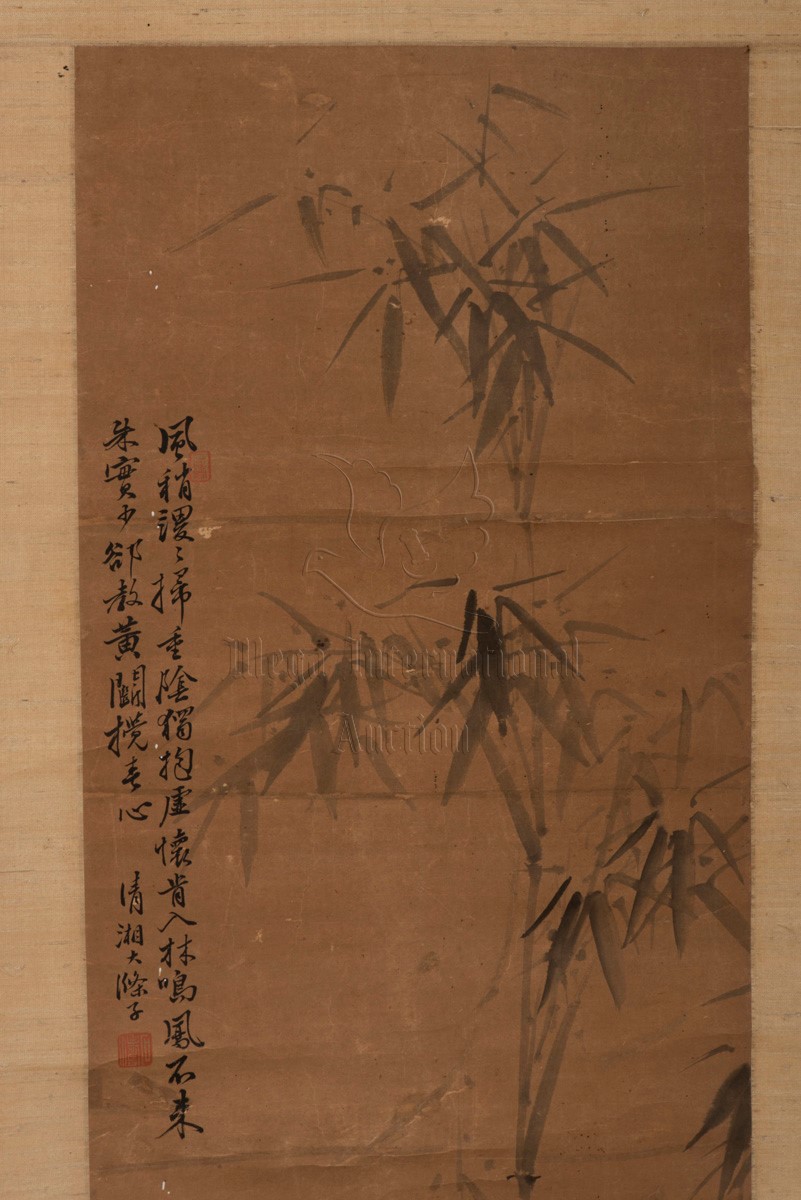 風稍謖〻掃重陰獨抱虛懷肯入林鳴鳳不來
朱實少郤教黃鸝攪春心
清湘大滌子
Mega International
Auction